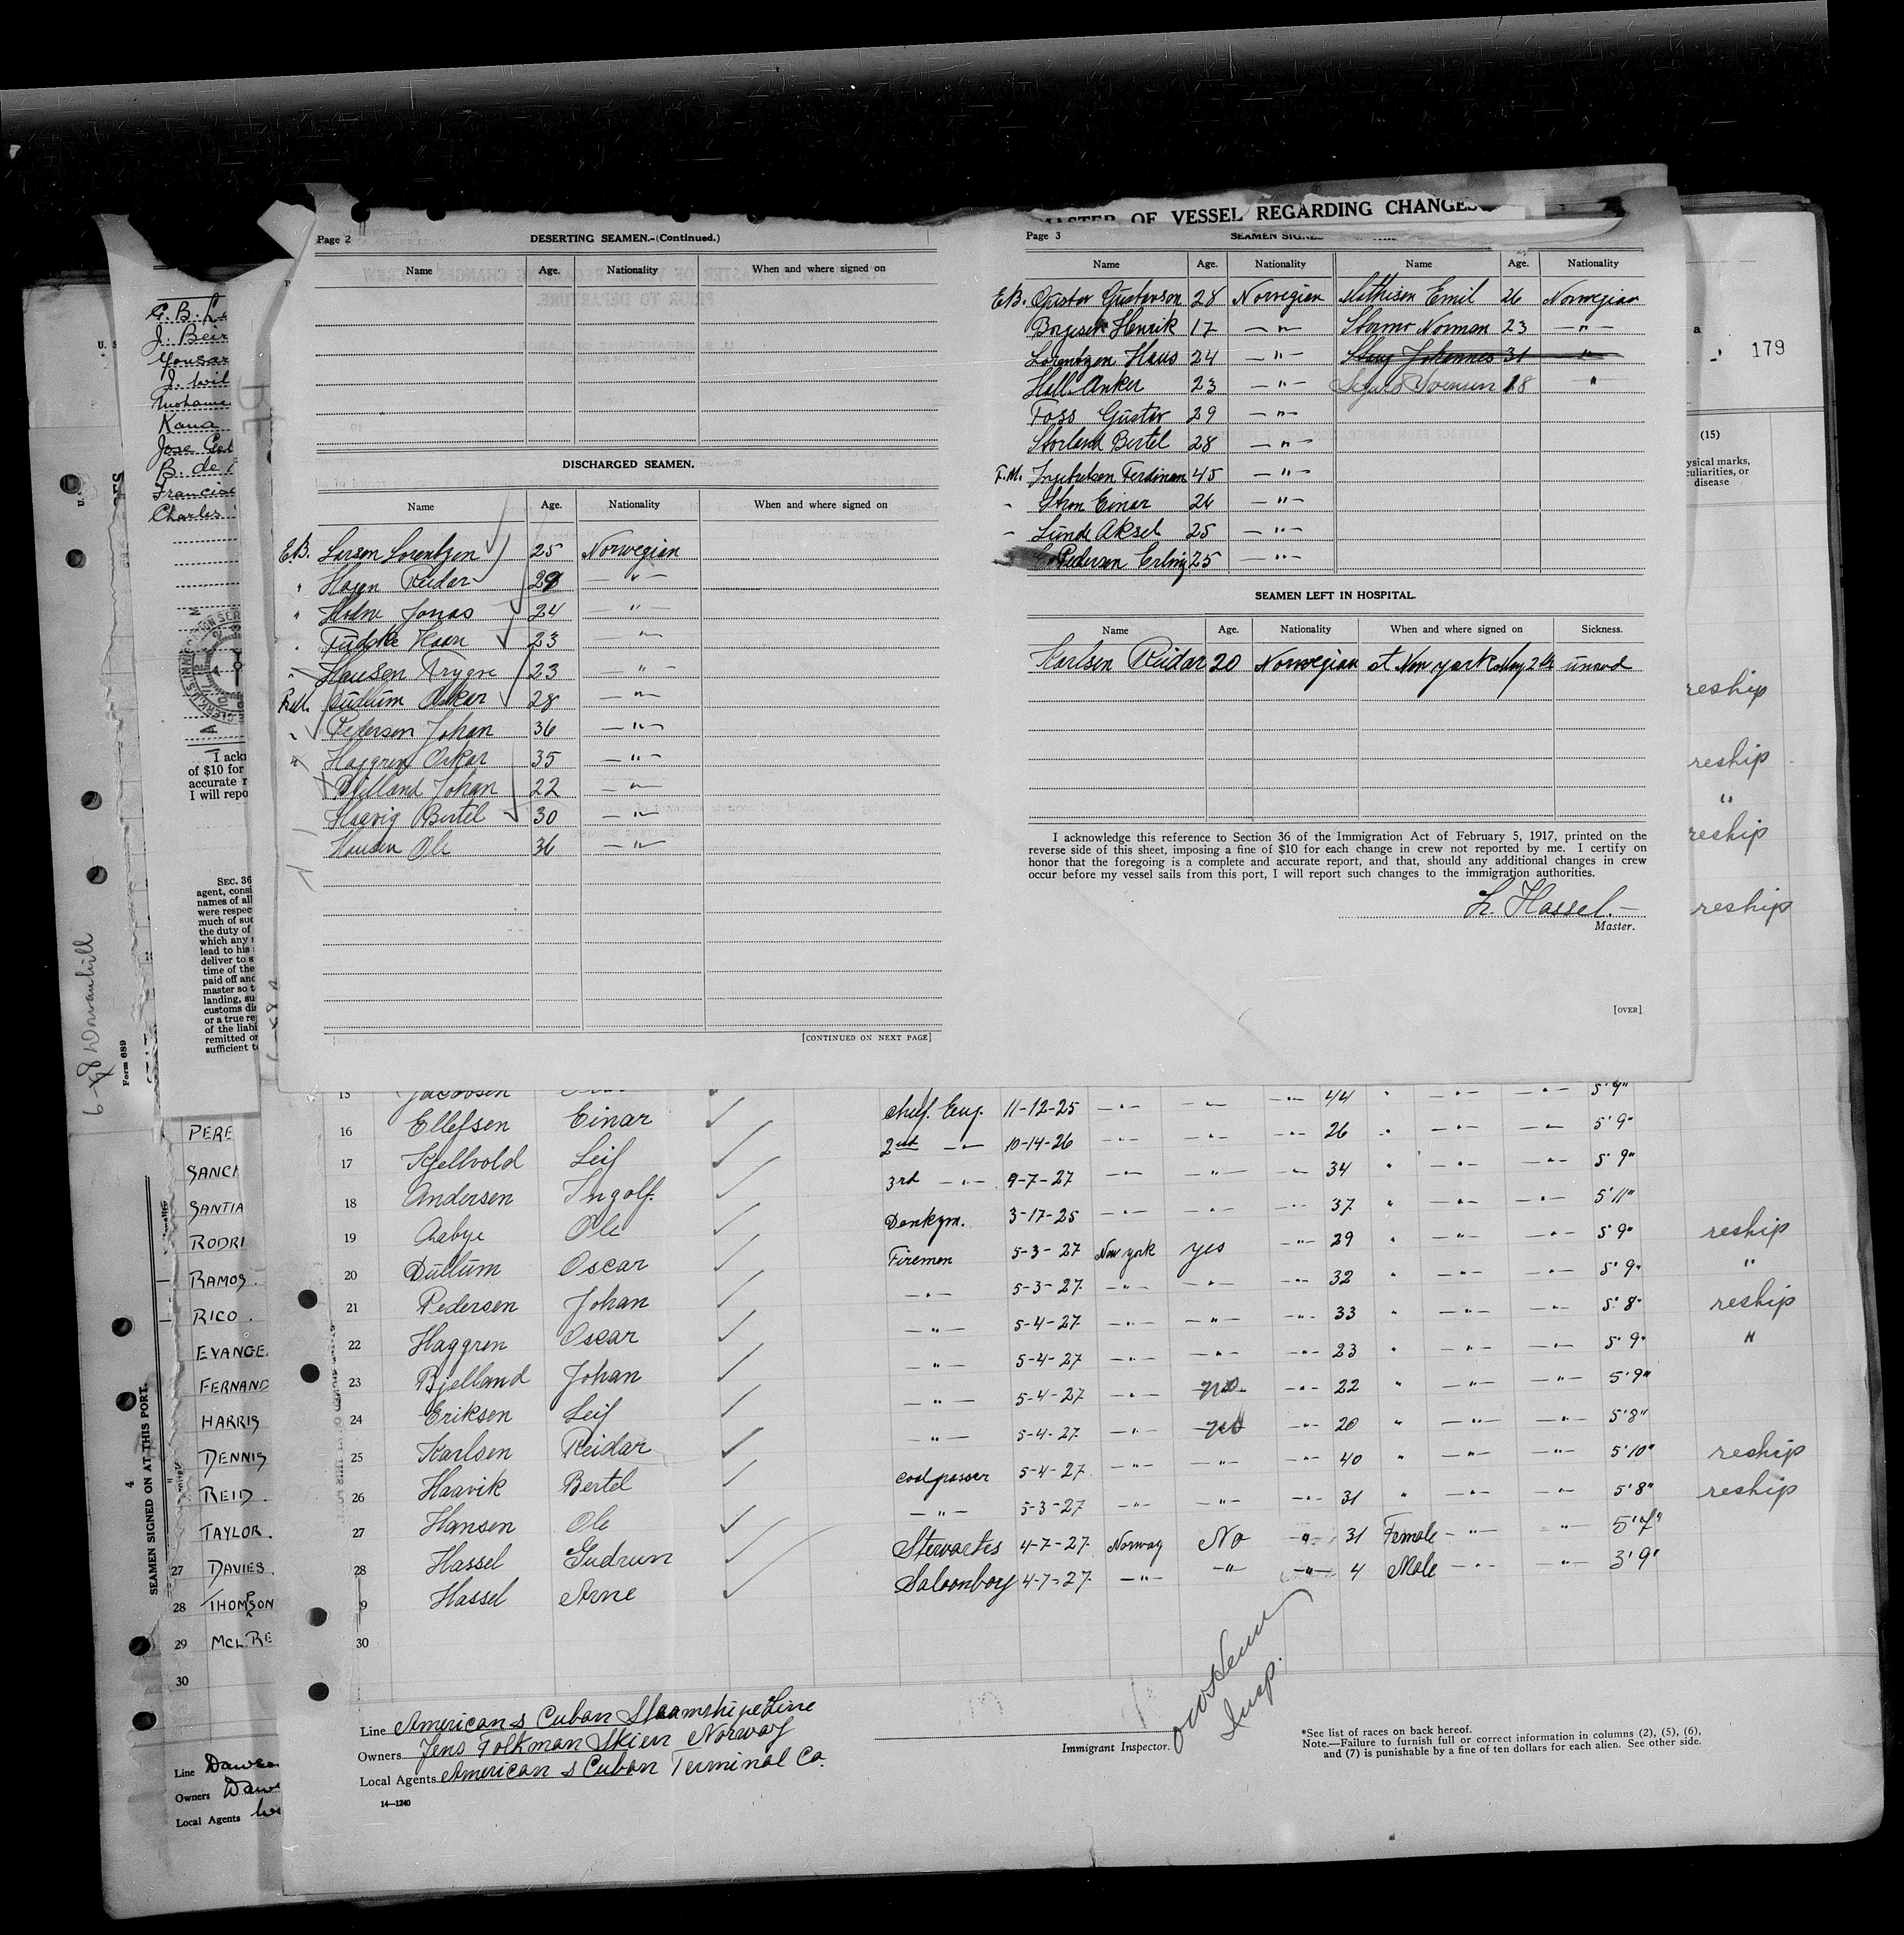 MASTER OF VESSEL REGARDING CHANGES
Page 2
DESERTING SEAMEN.-(Continued.)
Name Age. Nationality When and where signed on
DISCHARGED SEAMEN.
Name Age. Nationality When and where signed on
E.B. Larsen Lorentzen 25 Norwegian
" Hagen Reidar 29 — " —
" Holm Jonas 24 — " —
23 — " —
" Hansen Trygve 23 — " —
Dullum Oskar 28 — " —
" Pedersen Johan 36 — " —
" Haggren Oskar 35 — " —
Bjelland Johan 22 — " —
Haavig Bertel 30 — " —
Hansen Ole 36 — " —
[CONTINUED ON NEXT PAGE]
Page 3
SEAMEN SIGNED
Name Age. Nationality Name Age. Nationality
E.B. Gustav Gustavson 28 Norwegian Mathisen Emil 26 Norwegian
Borgesen Henrik 17 — " — Stormo Norman 23 — " —
Lorentzen Hans 24 — " — Stang Johannes 31 "
Hall Anker 23 — " — Svensen 18 "
Foss Gustav 29 — " —
Storland Bertel 28 — " —
F.M. Ferdinan 45 — " —
Einar 26 — " —
Lunde Aksel 25 — " —
Pedersen Erling 25 — " —
SEAMEN LEFT IN HOSPITAL.
Name Age. Nationality When and where signed on Sickness.
Karlsen Reidar 20 Norwegian at New york May 2
I acknowledge this reference to Section 36 of the Immigration Act of February 5, 1917, printed on the
reverse side of this sheet, imposing a fine of $10 for each change in crew not reported by me. I certify on
honor that the foregoing is a complete and accurate report, and that, should any additional changes in crew
occur before my vessel sails from this port, I will report such changes to the immigration authorities.
L. Hassel.
Master.
[OVER]
179
(15)
ysical marks,
culiarities, or
disease
reship
reship
"
reship
reship
15 Jacobsen 5'9"
16 Ellefsen Einar Chief. Eng. 11-12-25 — " — — " — — " — 44 " — " — — " — 5'9"
17 Kjellvold Leif 2nd — " — 10-14-26 — " — — " — — " — 26 " — " — — " — 5'9"
18 Andersen Ingolf. 3rd — " — 9-7-27 — " — — " — — " — 34 " — " — — " — 5'9"
19 Aabye Ole Donkym. 3-17-25 — " — — " — — " — 37 " — " — — " — 5'11"
20 Dullum Oscar Firemen 5-3-27 New york yes — " — 29 " — " — — " — 5'9" reship
21 Pedersen Johan — " — 5-3-27 — " — — " — — " — 32 " — " — — " — 5'9" "
22 Haggren Oscar — " — 5-4-27 — " — — " — — " — 33 " — " — — " — 5'8" reship
23 Bjelland Johan — " — 5-4-27 — " — — " — — " — 23 " — " — — " — 5'9" "
24 Eriksen Leif — " — 5-4-27 — " — no — " — 22 " — " — — " — 5'9"
25 Karlsen Reidar — " — 5-4-27 — " — — " — 20 " — " — — " — 5'8"
26 Haavik Bertel coalpasser 5-4-27 — " — — " — — " — 40 " — " — — " — 5'10" reship
27 Hansen Ole — " — 5-3-27 — " — — " — — " — 31 " — " — — " — 5'8" reship
28 Hassel Gudrun Stewartes 4-7-27 Norway No — " — 31 Female — " — — " — 5'7"
9 Hassel Arne Saloonboy 4-7-27 — " — — " — — " — 4 Male — " — — " — 3'9"
30
Insp.
Line American & Cuban Steamship Line
Owners Jens Folkman Skien Norway
Local Agents American & Cuban Terminal Co.
14—1240
Immigrant Inspector.
*See list of races on back hereof.
Note.—Failure to furnish full or correct information in columns (2), (5), (6),
and (7) is punishable by a fine of ten dollars for each alien. See other side.
J. Beir
Yousar
J. Wil
Mohame
Kana
Jose
B. de
Francisc
Charles
I ack
of $10 for
accurate r
I will repo
SEC. 36
agent, consi
names of all
were respec
much of suc
the duty of
which any
lead to his
deliver to s
time of the
paid off and
master so t
landing, su
customs dis
or a true re
of the liabi
remitted or
sufficient to
Form 689
4
SEAMEN SIGNED ON AT THIS PORT.
PERE
SANCH
SANTIA
RODRI
RAMOS.
RICO.
EVANGE.
FERNAND
HARRIS
DENNIS
REID.
TAYLOR.
27 DAVIES.
28 THOMPSON
29 MCL.RE
30
Line Dawson
Owners Daws
Local Agents